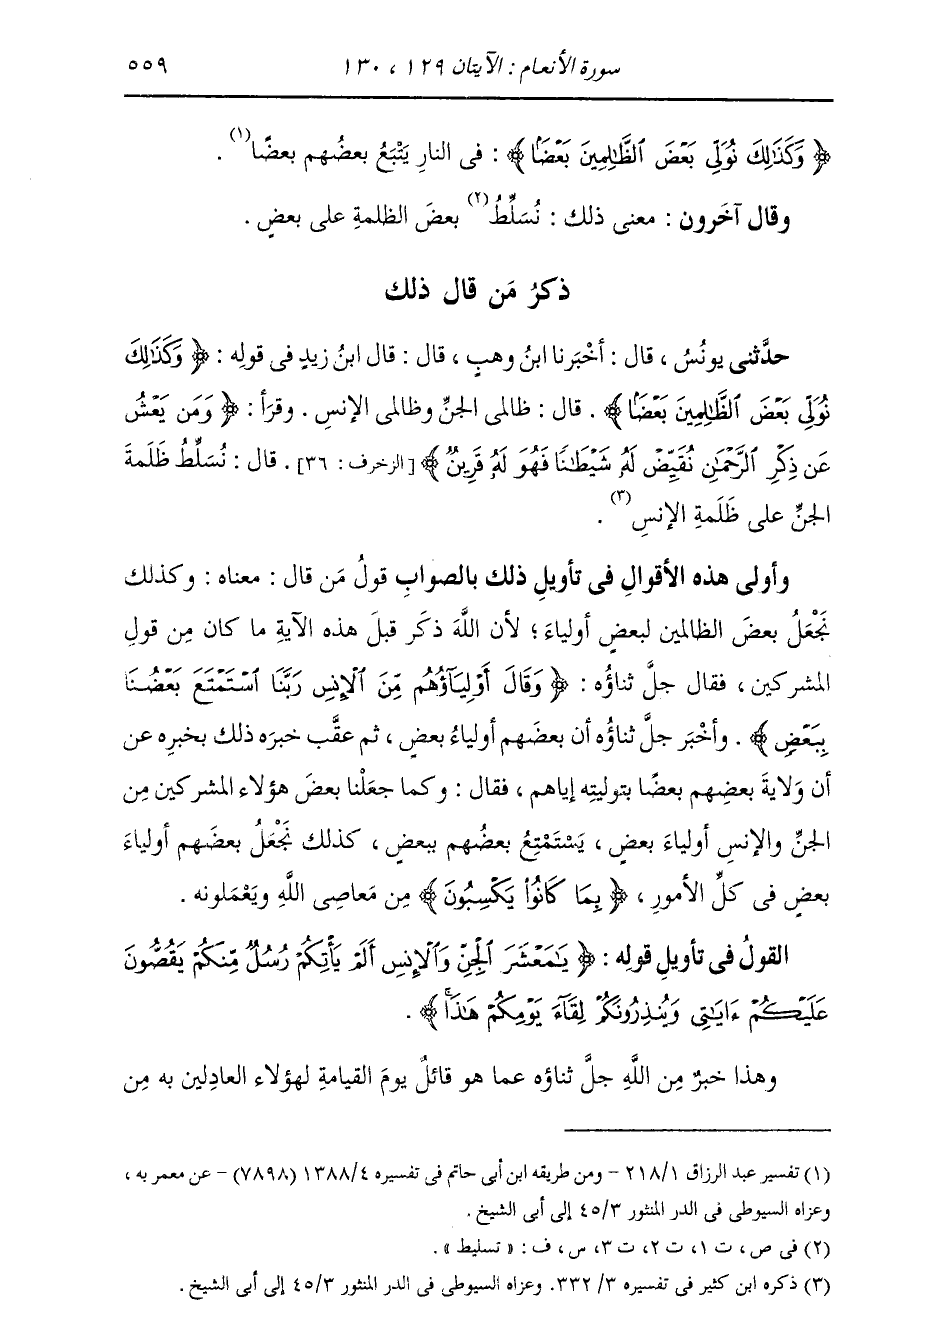 سورة الأنعام : الآيتان ١٢٩ ، ١٣٠ ٥٥٩
﴿ وَكَذَٰلِكَ نُوَلِّي بَعْضَ ٱلظَّٰلِمِينَ بَعْضًا ﴾ : فى النارِ يَتْبَعُ بعضُهم بعضًا(١) .
وقال آخَرون : معنى ذلك : نُسَلِّطُ(٢) بعضَ الظلمةِ على بعضٍ .
ذكرُ مَن قال ذلك
حدَّثنى يونُسُ ، قال : أخْبَرنا ابنُ وهبٍ ، قال : قال ابنُ زيدٍ فى قولِه : ﴿ وَكَذَٰلِكَ
نُوَلِّي بَعْضَ ٱلظَّٰلِمِينَ بَعْضًا ﴾ . قال : ظالمى الجنِّ وظالمى الإنسِ . وقرَأ : ﴿ وَمَن يَعْشُ
عَن ذِكْرِ ٱلرَّحْمَٰنِ نُقَيِّضْ لَهُۥ شَيْطَٰنًا فَهُوَ لَهُۥ قَرِينٌ ﴾ [الزخرف : ٣٦] . قال : نُسَلِّطُ ظَلَمةَ
الجنِّ على ظَلَمةِ الإنسِ(٣) .
وأولى هذه الأقوالِ فى تأويلِ ذلك بالصوابِ قولُ مَن قال : معناه : وكذلك
نَجْعَلُ بعضَ الظالمين لبعضٍ أولياءَ ؛ لأن اللَّهَ ذكَر قبلَ هذه الآيةِ ما كان مِن قولِ
المشركين ، فقال جلَّ ثناؤُه : ﴿ وَقَالَ أَوْلِيَآؤُهُم مِّنَ ٱلْإِنسِ رَبَّنَا ٱسْتَمْتَعَ بَعْضُنَا
بِبَعْضٍ ﴾ . وأخْبَر جلَّ ثناؤُه أن بعضَهم أولياءُ بعضٍ ، ثم عقَّب خبرَه ذلك بخبرِه عن
أن وَلايةَ بعضِهم بعضًا بتوليتِه إياهم ، فقال : وكما جعَلْنا بعضَ هؤلاء المشركين مِن
الجنِّ والإنسِ أولياءَ بعضٍ ، يَسْتَمْتِعُ بعضُهم ببعضٍ ، كذلك نَجْعَلُ بعضَهم أولياءَ
بعضٍ فى كلِّ الأمورِ ، ﴿ بِمَا كَانُوا۟ يَكْسِبُونَ ﴾ مِن مَعاصِى اللَّهِ ويَعْمَلونه .
القولُ فى تأويلِ قولِه : ﴿ يَٰمَعْشَرَ ٱلْجِنِّ وَٱلْإِنسِ أَلَمْ يَأْتِكُمْ رُسُلٌ مِّنكُمْ يَقُصُّونَ
عَلَيْكُمْ ءَايَٰتِي وَيُنذِرُونَكُمْ لِقَآءَ يَوْمِكُمْ هَٰذَا ۚ ﴾ .
وهذا خبرٌ مِن اللَّهِ جلَّ ثناؤه عما هو قائلٌ يومَ القيامةِ لهؤلاء العادِلين به مِن
(١) تفسير عبد الرزاق ٢١٨/١ – ومن طريقه ابن أبى حاتم فى تفسيره ١٣٨٨/٤ (٧٨٩٨) – عن معمر به ،
وعزاه السيوطى فى الدر المنثور ٤٥/٣ إلى أبى الشيخ .
(٢) فى ص ، ت ١، ت ٢، ت ٣، س ، ف : « تسليط » .
(٣) ذكره ابن كثير فى تفسيره ٣/ ٣٣٢. وعزاه السيوطى فى الدر المنثور ٤٥/٣ إلى أبى الشيخ .